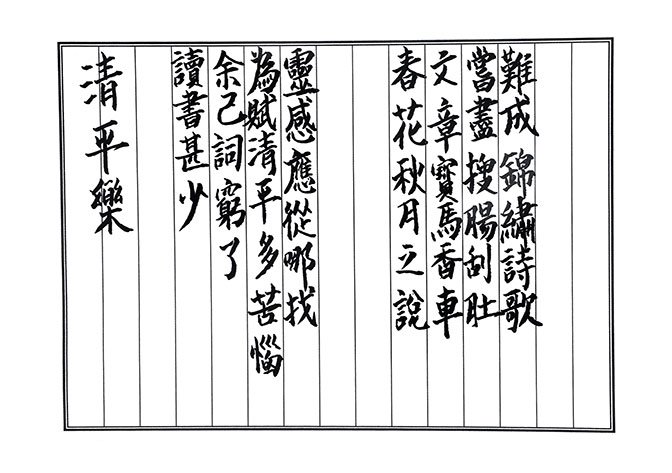 清平樂
讀書甚少
余己詞窮了
為賦清平多苦惱
靈感應從哪找
春花秋月之說
文章寶馬香車
嘗盡搜腸刮肚
難成錦繡詩歌